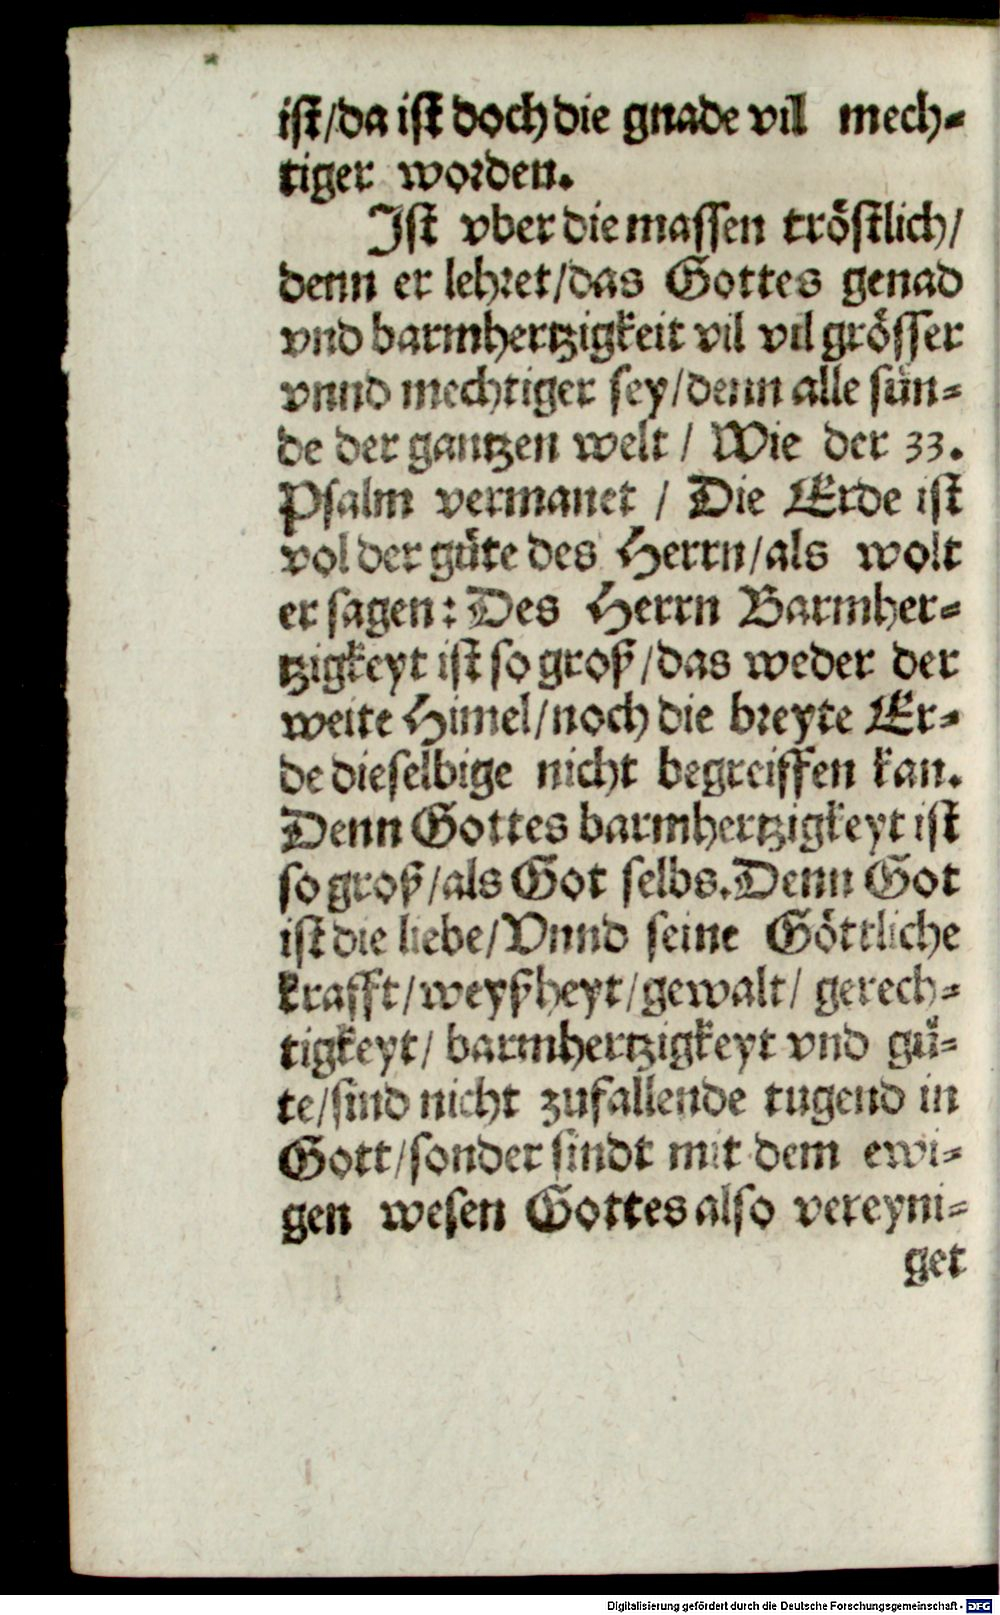 ist/da ist doch die gnade vil mech-
tiger worden.
Ist vber die massen tröstlich/
denn er lehret/das Gottes genad
vnd barmhertzigkeit vil vil grösser
vnnd mechtiger sey/denn alle sün-
de der gantzen welt / Wie der 33.
Psalm vermanet / Die Erde ist
vol der güte des Herrn/als wolt
er sagen: Des Herrn Barmher-
tzigkeyt ist so groß/das weder der
weite Himel/noch die breyte Er-
de dieselbige nicht begreiffen kan.
Denn Gottes barmhertzigkeyt ist
so groß/als Got selbs. Denn Got
ist die liebe/Vnnd seine Göttliche
krafft/weyßheyt/gewalt/ gerech-
tigkeyt/ barmhertzigkeyt vnd gü-
te/sind nicht zufallende tugend in
Gott/sonder sindt mit dem ewi-
gen wesen Gottes also vereyni-
get
Digitalisierung gefördert durch die Deutsche Forschungsgemeinschaft - DFG